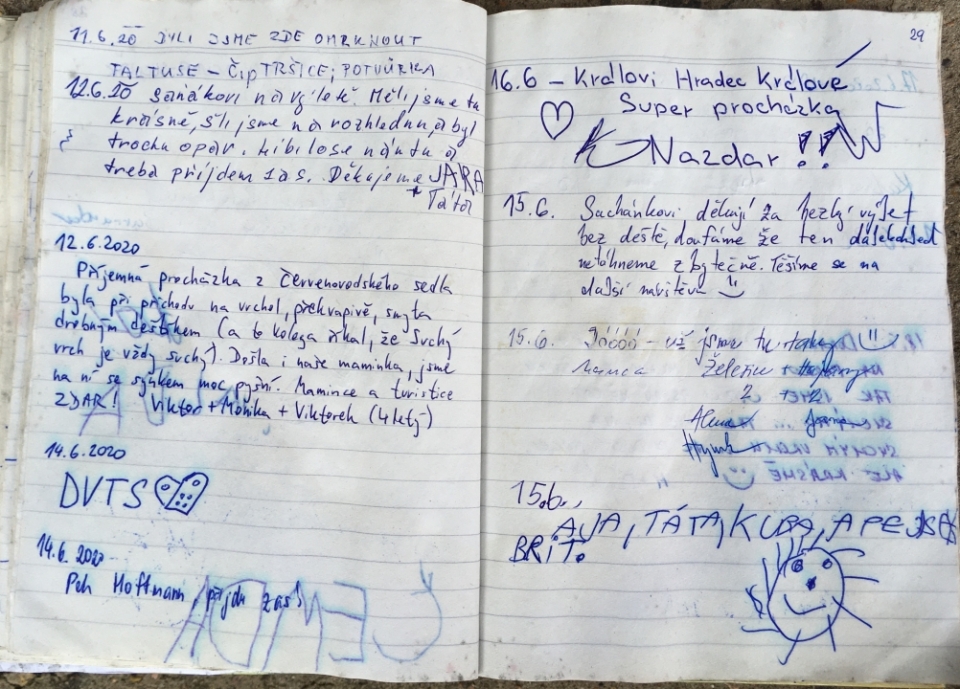 11.6.20 BYLI JSME ZDE OMRKNOUT
TALTUSE – ČIPTRŠICE, POTVŮRKA
12.6.20 na výletě. Měli jsme tu
krásně, šli jsme na rozhlednu, a byl
trochu opar. Líbilo se nám tu a
třeba příjdem zas. Děkujeme JARA
+ Táta
12.6.2020
Příjemná procházka z Červenovodského sedla
byla při příchodu na vrchol, překvapivě, smyta
drobným deštíkem (a to kolega říkal, že Suchý
vrch je vždy suchý). Došla i naše maminka, jsme
na ní se synkem moc pyšní. Mamince a turistice
ZDAR! Viktor + Monika + Viktorek (4 letý)
14.6.2020
DVTS
14.6.2020
Petr Hoffmann, přijdu zas!
29
16.6 – Královi Hradec Králové
Super procházka
Nazdar !!
15.6. Sucháňkovi děkují za hezký výlet
bez deště, doufáme že ten dalekohled
netáhneme zbytečně. Těšíme se na
další návštěvu
15.6. – už jsme tu taky
15.6.,
AJA, TÁTA, KUBA, A PEJSEK
BRIT.